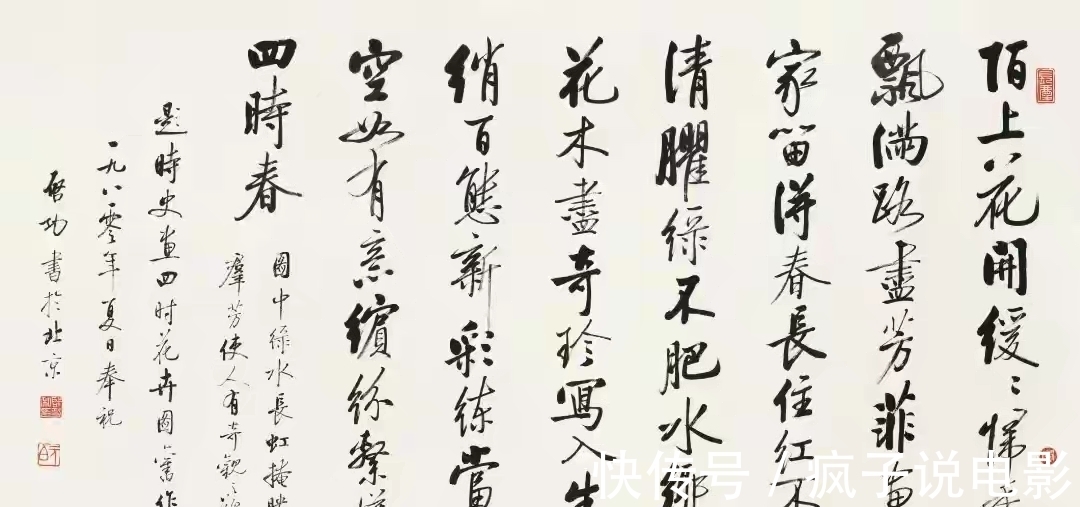 陌上花開緩〻
飄滿路盡芳菲畫
家留得春長住紅不
清臞綠不肥水鄉
花木盡奇珍寫入生
綃百態新彩練當
空如有意繽紛繫
四時春
圖中綠水長虹掩映
群芳使人有奇觀之
題時史畫四時花卉圖舊作
一九八零年夏日奉祝
啟功書於北京
快传号 / 疯子说电影